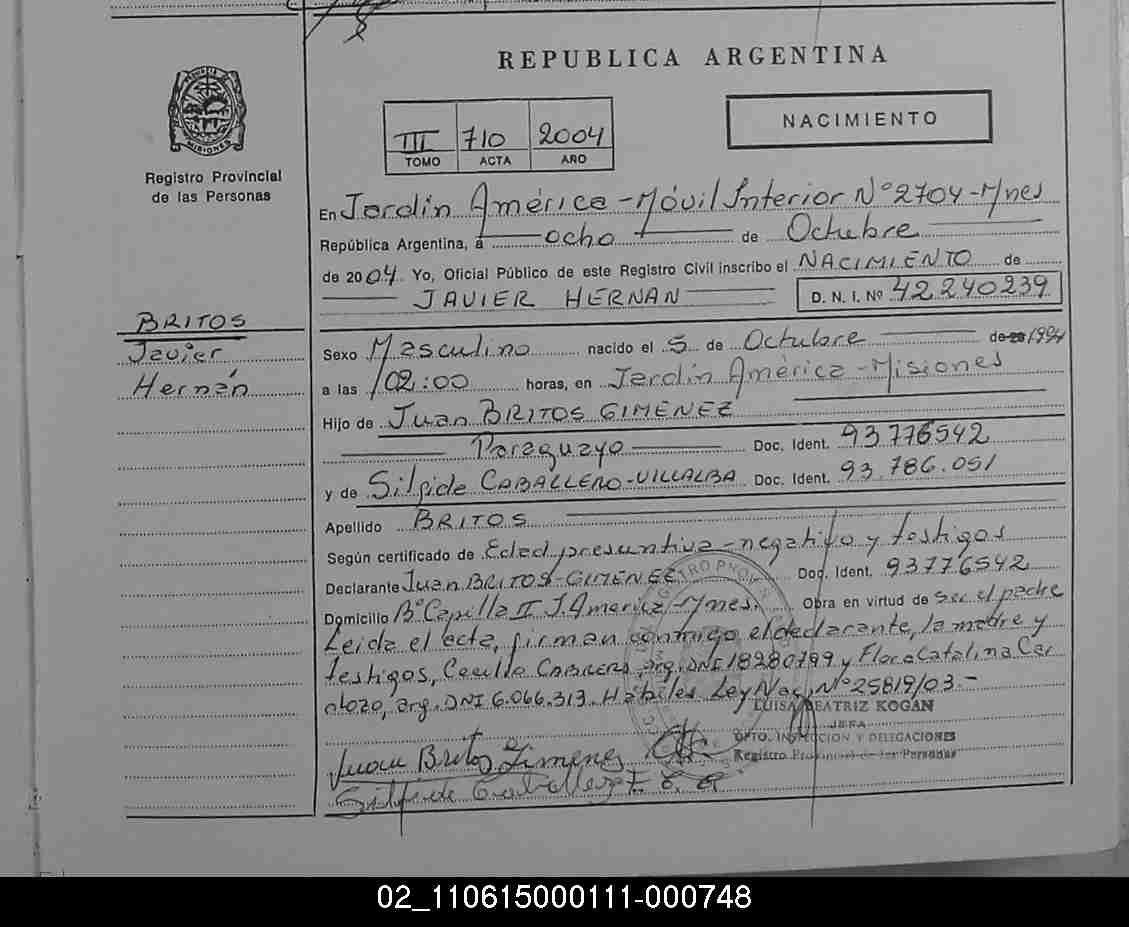 REPUBLICA ARGENTINA
MISIONES
Registro Provincial
de las Personas
III 710 2004
TOMO ACTA AÑO
NACIMIENTO
En Jardín América - Móvil Interior Nº 2704 - Mnes
República Argentina, a ocho de Octubre
de 2004 Yo, Oficial Público de este Registro Civil inscribo el NACIMIENTO de
JAVIER HERNAN D. N. I. Nº 42.240.239
BRITOS
Javier
Hernán
Sexo Masculino nacido el 5 de Octubre de 1994
a las 02:00 horas, en Jardín América - Misiones
Hijo de Juan BRITOS GIMENEZ
Paraguayo Doc. Ident. 93776542
y de Silfide CABALLERO-VILLALBA Doc. Ident. 93.786.051
Apellido BRITOS
Según certificado de Edad presuntiva - negativo y testigos
Declarante Juan BRITOS-GIMENEZ Doc. Ident. 93776542
Domicilio Bº Capilla II J. América - Mnes. Obra en virtud de ser el padre
Leída el acta, firman conmigo el declarante, la madre y
testigos, CABRERA, arg. DNI 18280799 y Flora Catalina Car
dozo, arg. DNI 6.066.313. Hábiles Ley Nac. Nº 25819/03.-
LUISA BEATRIZ KOGAN
JEFA
DPTO. INSPECCION Y DELEGACIONES
Registro Provincial de las Personas
Juan Britos Gimenez
02_110615000111-000748